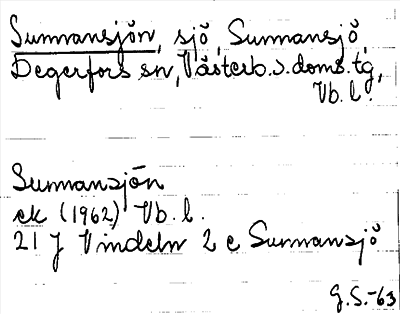 Sunnansjön, sjö, Sunnansjö,
Degerfors sn, Västerb. s. doms. tg,
Vb. l.
Sunnansjön
ek (1962) Vb. l.
21 J Vindeln 2 c Sunnansjö
G.S.-63